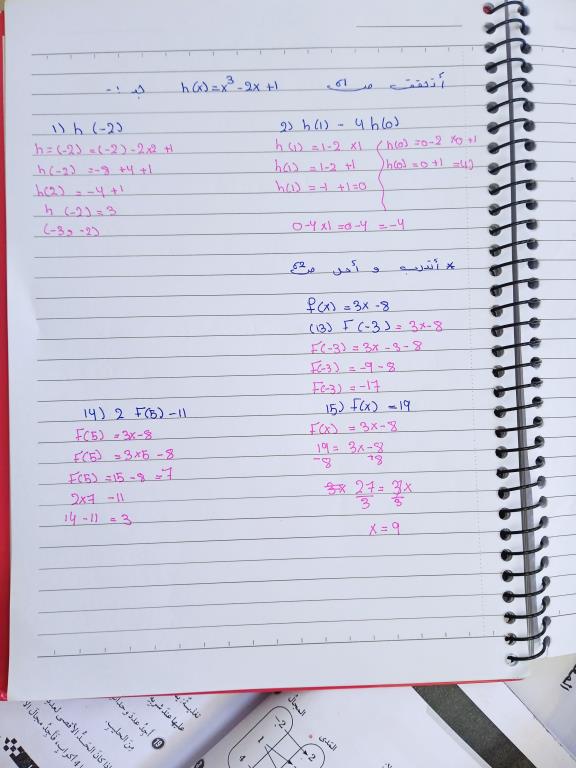 أتحقق من h(x) = x³ - 2x + 1
1) h(-2)
h = (-2) = (-2) - 2x2 + 1
h(-2) = -8 + 4 + 1
h(2) = -4 + 1
h(-2) = 3
(-3, -2)
2) h(1) - 4 h(0)
h(1) = 1 - 2 x 1
h(1) = 1 - 2 + 1
h(1) = -1 + 1 = 0
h(0) = 0 - 2 x 0 + 1
h(0) = 0 + 1
0 - 4 x 1 = 0 - 4 = -4
* أتدرب و أحل
f(x) = 3x - 8
(13) F(-3) = 3x - 8
F(-3) = 3x - 3 - 8
F(-3) = -9 - 8
F(-3) = -17
14) 2 F(5) - 11
F(5) = 3x - 8
F(5) = 3x5 - 8
F(5) = 15 - 8 = 7
2x7 - 11
14 - 11 = 3
15) f(x) = 19
F(x) = 3x - 8
19 = 3x - 8
27/3 = 3x/3
x = 9
المجال
المدى
-2
1
2
4
أجد عدد وحدات
من الحليب.